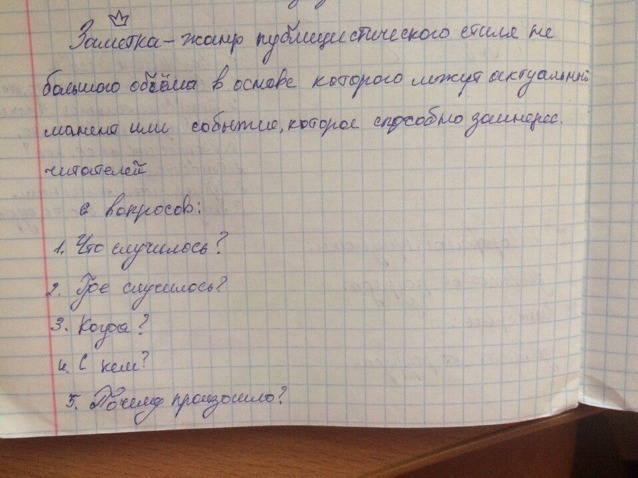 Заметка – жанр публицистического стиля не
большого объёма в основе которого лежит актуальный
момент или событие, которое способно заинтерес.
читателей
6 вопросов:
1. Что случилось?
2. Где случилось?
3. Когда?
4. С кем?
5. Почему произошло?